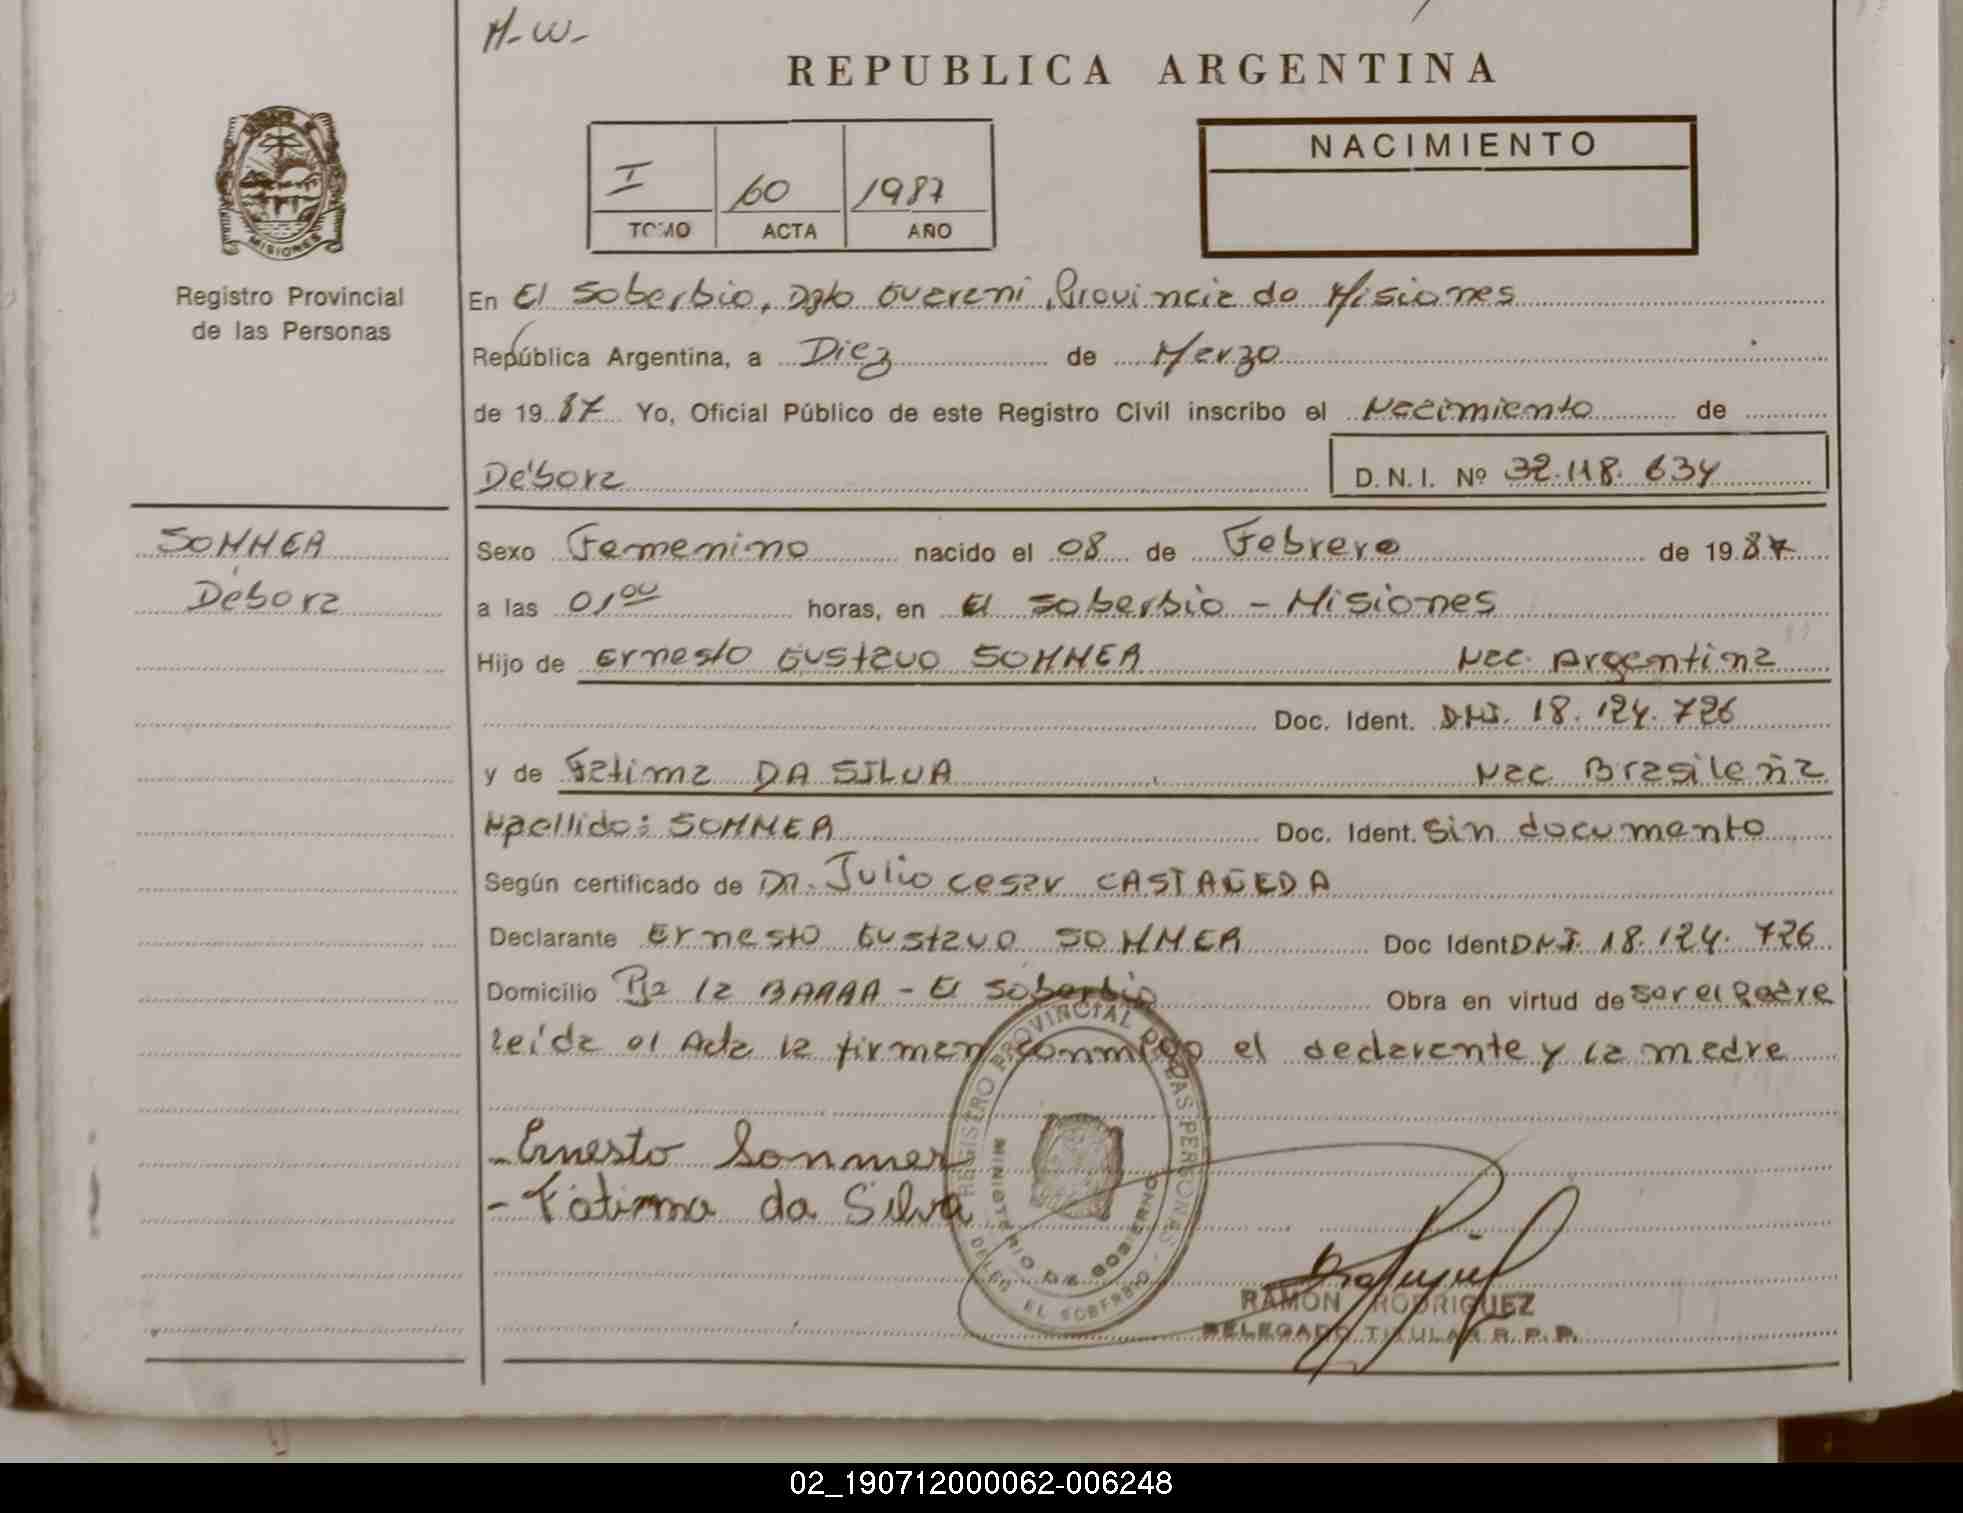 H-W-
REPUBLICA ARGENTINA
NACIMIENTO
I 60 1987
TOMO ACTA AÑO
MISIONES
Registro Provincial
de las Personas
En El Soberbio, Dpto Guarani, Provincia de Misiones
República Argentina, a Diez de Marzo
de 19 87 Yo, Oficial Público de este Registro Civil inscribo el Nacimiento de
Débora D.N.I. Nº 32.118.634
SOMMER
Débora
Sexo Femenino nacido el 08 de Febrero de 19 87
a las 01,00 horas, en El Soberbio - Misiones
Hijo de Ernesto Gustavo SOMMER Nac. Argentina
Doc. Ident. DNI. 18.124.726
y de Fatima DA SILVA Nac. Brasileña
Apellido: SOMMER Doc. Ident. Sin documento
Según certificado de DR. Julio Cesar CASTAÑEDA
Declarante Ernesto Gustavo SOMMER Doc Ident DNI. 18.124.726
Domicilio Pje la BARRA - El Soberbio Obra en virtud de Ser el Padre
Leida el Acta la firman conmigo el declarante y la madre
- Ernesto Sommer
- Fátima da Silva
REGISTRO PROVINCIAL DE LAS PERSONAS
MINISTERIO DE GOBIERNO
DELEG. EL SOBERBIO
RAMON RODRIGUEZ
DELEGADO TITULAR R. P. P.
02_190712000062-006248